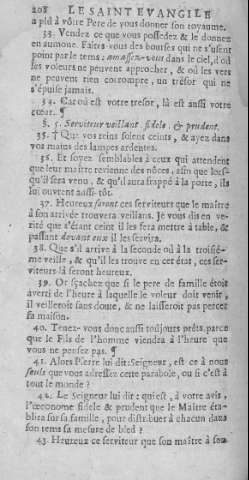 208 LE SAINT EVANGILE
a plû à vôtre Pere de vous donner son royaume.
33. Vendez ce que vous possedez & le donnez
en aumone. Faites-vous des bourses qui ne s'usent
point par le tems; amassez-vous dans le ciel, d'où
les voleurs ne peuvent approcher, & où les vers
ne peuvent rien corrompre, un trésor qui ne
s'épuise jamais.
34. Car où est votre tresor, là est aussi votre
cœur. ¶
§. 5. Serviteur veillant, fidele, & prudent.
35. † Que vos reins soient ceints, & ayez dans
vos mains des lampes ardentes.
36. Et soyez semblables à ceux qui attendent
que leur maître revienne des nôces, afin que lors-
qu'il sera venu, & qu'il aura frappé à la porte, ils
lui ouvrent aussi-tôt.
37. Heureux seront ces serviteurs que le maître
à son arrivée trouvera veillans. Je vous dis en ve-
rité que s'étant ceint il les fera mettre à table, &
passant devant eux il les servira.
38. Que s'il arrive à la seconde où à la troisié-
me veille, & qu'il les trouve en cet état, ces ser-
viteurs là seront heureux.
39. Or sçachez que si le pere de famille étoit
averti de l'heure à laquelle le voleur doit venir,
il veilleroit sans doute, & ne laisseroit pas percer
sa maison.
40. Tenez-vous donc aussi toûjours prêts, parce
que le Fils de l'homme viendra à l'heure que
vous ne pensez pas. ¶
41. Alors Pierre lui dit: Seigneur, est ce à nous
seuls que vous adressez cette parabole, ou si c'est à
tout le monde?
42. Le Seigneur lui dit: qui est, à votre avis,
l'œconome fidele & prudent que le Maitre éta-
blira sur sa famille, pour distribuer à chacun dans
son tems sa mesure de bled?
43. Heureux ce serviteur que son maître à son